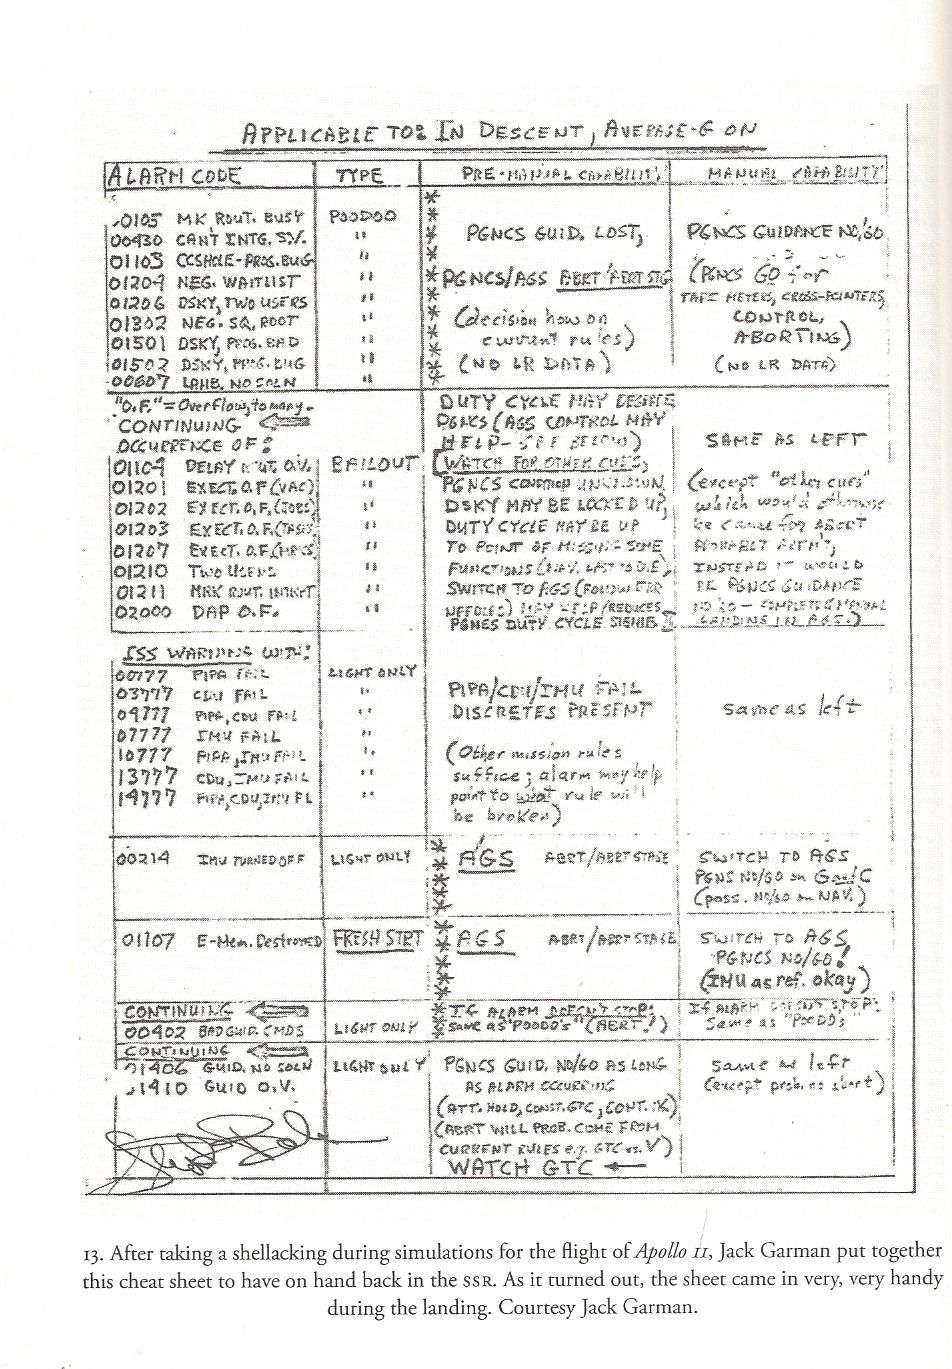 APPLICABLE TO: IN DESCENT, AVERAGE-G ON
ALARM CODE TYPE PRE-MANUAL CAPABILITY MANUAL CAPABILITY
00105 MK ROUT. BUSY POODOO
00430 CAN'T INTG. S.V. " PGNCS GUID. LOST, PGNCS GUIDANCE NO/GO
01103 CCSHOLE-PROG. BUG "
01204 NEG. WAITLIST " PGNCS/AGS ABRT/ABRT STG (PGNCS GO for
01206 DSKY, TWO USERS " TAPE METERS, CROSS-POINTERS,
01302 NEG. SQ. ROOT " (decision how on CONTROL,
01501 DSKY, PROG. BAD " current rules) ABORTING)
01502 DSKY, PROG. BUG " (NO LR DATA) (NO LR DATA)
00607 LAMB. NO SOLN "
"O.F."=Overflow, to many. DUTY CYCLE MAY
CONTINUING PGNCS (AGS CONTROL MAY
OCCURRENCE OF: HELP- SEE BELOW) SAME AS LEFT
01104 DELAY ROUT. O.V. BAILOUT (WATCH FOR OTHER CUES,
01201 EXECT. O.F (VAC) " PGNCS CONDITION UNKNOWN (except "other cues"
01202 EXECT. O.F. (JOBS) " DSKY MAY BE LOCKED UP, which would otherwise
01203 EXECT. O.F. (TASKS) " DUTY CYCLE MAY BE UP be cause for ABORT
01207 EXECT. O.F. " TO POINT OF MISSING SOME
01210 TWO USERS " FUNCTIONS (NAV. LAST TO DIE), INSTEAD IT WOULD
01211 MRK ROUT. INTRRT " SWITCH TO AGS (FOLLOW ERR BE PGNCS GUIDANCE
02000 DAP O.F. " NEEDLES) MAY HELP/REDUCES NO/GO - COMPLETE MANUAL
PGNCS DUTY CYCLE LANDING IN
ISS WARNING WITH:
00777 PIPA FAIL LIGHT ONLY
03777 CDU FAIL " PIPA/CDU/IMU FAIL
04777 PIPA, CDU FAIL " DISCRETES PRESENT same as left
07777 IMU FAIL "
10777 PIPA, IMU FAIL " (Other mission rules
13777 CDU, IMU FAIL " suffice; alarm may help
14777 PIPA, CDU, IMU FL " point to what rule will
be broken)
00214 IMU TURNED OFF LIGHT ONLY AGS ABRT/ABRT STAGE SWITCH TO AGS
PGNS NO/GO on G and C
(poss. NO/GO on NAV.)
01107 E-Mem. Destroyed FRESH STRT AGS ABRT/ABRT STAGE SWITCH TO AGS,
PGNCS NO/GO!
(IMU as ref. okay)
CONTINUING If ALARM DOESN'T STOP: If ALARM DOESN'T STOP:
00402 BAD GUID. CMDS LIGHT ONLY same as "POODO's" (ABERT!) Same as "POODO's"
CONTINUING
01406 GUID. NO SOLN LIGHT ONLY PGNCS GUID. NO/GO AS LONG same as left
01410 GUID O.V. AS ALARM OCCURRING (except prob. no abort)
(ATT. HOLD, CONST. GTC, CONT. OK)
(ABRT WILL PROB. COME FROM
CURRENT RULES e.g. GTC vs. V)
WATCH GTC ←
13. After taking a shellacking during simulations for the flight of Apollo 11, Jack Garman put together
this cheat sheet to have on hand back in the SSR. As it turned out, the sheet came in very, very handy
during the landing. Courtesy Jack Garman.